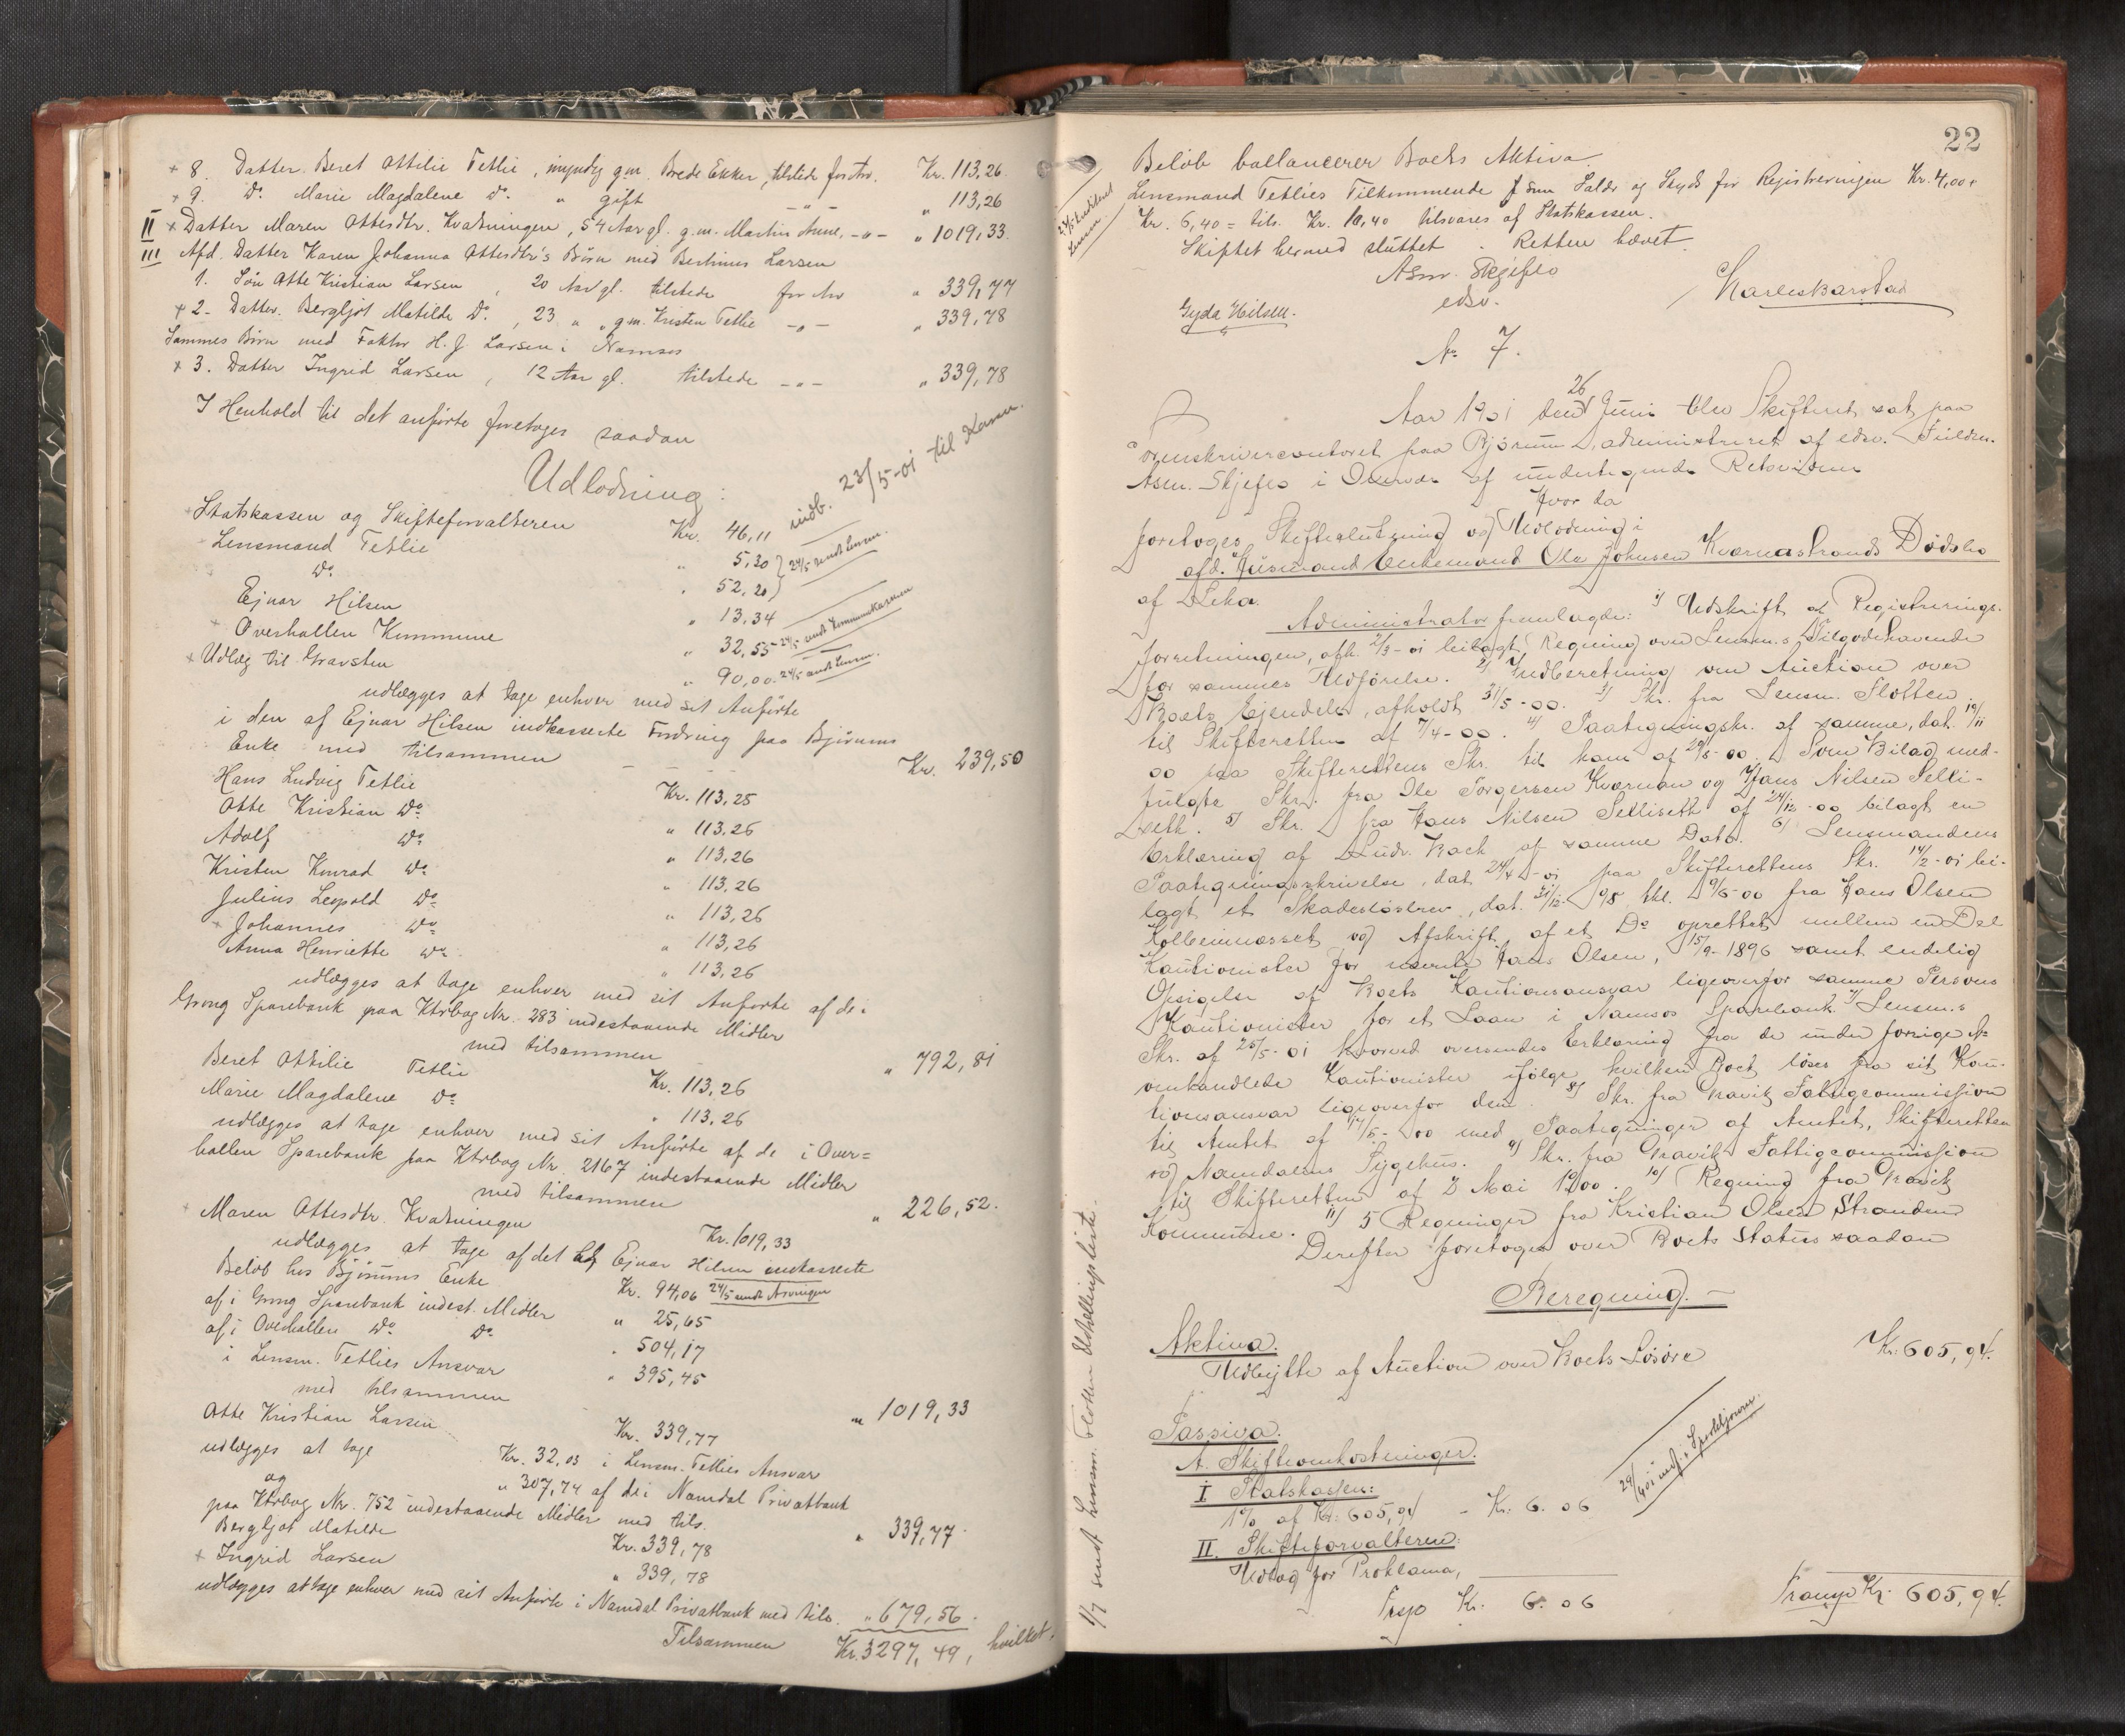 + 8. Datter Beret Attilie Tetlie, myndig gm. Brede Ekker, tilstede for Arv. Kr. 113,26
+ 9. Do Marie Magdalene Do " gift - " - " 113,26
II + Datter Maren Ottesdtr. Kvatningen, 54 Aar gl. g.m. Martin Aune, -"- " 1019,33
III Afd. Datter Karen Johanna Ottesdtr's Børn med Bertinus Larsen
1. Søn Otte Kristian Larsen, 20 Aar gl. tilstede for Arv " 339,77
+ 2. Datter Bergljot Matilde Do, 23 " " gm. Kristen Tetlie -"- " 339,78
Sammes Børn med Faktor H. J. Larsen i Namsos
+ 3. Datter Ingrid Larsen, 12 Aar gl. tilstede -"- " 339,78
I Henhold til det anførte foretoges saadan
Udlodning:
+ Statskassen og Skifteforvalteren Kr. 46,11 indb. 23/5-01 til Kassen.
- Lensmand Tetlie " 5,20 } 24/5 sendt Lensm.
Do " 52,20 }
Ejnar Hilsen " 13,34
+ Overhallen Kommune " 32,55 24/5 sendt Kommunekassen
+ Udlæg til Gravsten " 90,00 24/5 sendt Lensm.
udlægges at tage enhver med sit Anførte
i den af Ejnar Hilsen indkasserte Fordring paa Bjørums
Enke med tilsammen - - - Kr. 239,50
Hans Ludvig Tetlie Kr. 113,25
Otte Kristian Do " 113,26
Adolf Do " 113,26
Kristen Konrad Do " 113,26
Julius Leopold Do " 113,26
+ Johannes Do " 113,26
Anna Henriette Do " 113,26
udlægges at tage enhver med sit Anførte af de i
Grong Sparebank paa Ktrbog Nr. 283 indestaaende Midler
med tilsammen " 792,81
Beret Attilie Tetlie Kr. 113,26
Marie Magdalene Do " 113,26
udlægges at tage enhver med sit Anførte af de i Over=
hallen Sparebank paa Ktrbog Nr. 2167 indestaaende Midler
med tilsammen " 226,52.
+ Maren Ottesdtr. Kvatningen Kr. 1019,33
udlægges at tage af det af Ejnar Hilsen indkasserte
Beløb hos Bjørums Enke Kr. 94,06 24/5 sendt Arvingen
af i Grong Sparebank indest. Midler " 25,65
af i Overhallen Do Do " 504,17
i Lensm. Tetlies Ansvar " 395,45
med tilsammen " 1019,33
Otte Kristian Larsen Kr. 339,77
udlægges at tage Kr. 32,03 i Lensm. Tetlies Ansvar
og " 307,74 af de i Namdal Privatbank
paa Ktrbog Nr. 752 indestaaende Midler med tils. " 339,77.
Bergljot Matilde Kr. 339,78
+ Ingrid Larsen " 339,78
udlægges at tage enhver med sit Anførte i Namdal Privatbank med tils. " 679,56
Tilsammen Kr. 3297,49, hvilket
22
Beløb ballancerer Boets Aktiva.
Lensmand Tetlies Tilkommende f. sine Salær og Skyds for Registreringen Kr. 4,00 +
Kr. 6,40 = tils. Kr. 10,40 tilsvares af Statskassen.
Skiftet hermed sluttet. Retten hævet.
Asm. Skjeflo
edsv.
Gyda Hilsen.
No 7.
Aar 1901 den 26 Juni blev Skifteret sat paa
Sorenskrivercontoret paa Bjørum, administreret af edsv. Fuldm.
Asm. Skjeflo i Overvær af undertegnede Retsvidner
Hvor da
foretoges Skifteslutning og Udlodning i
afd. Husmand Enkemand Ole Johnsen Kvernastrands Dødsbo
af Leka.
Administrator fremlagde: 1) Udskrift af Registrerings-
forretningen, afh. 2/3-01 bilagt Regning over Lensm.s Tilgodehavende
for sammes Udførelse. 2) Indberetning om Auction over
Boets Ejendele, afholdt 31/5-00. 3) Skr. fra Lensm. Flotten
til Skifteretten af 7/4-00. 4) Paategningskr. af samme, dat. 19/11
00 paa Skifterettens Skr. til ham af 29/8-00. Som Bilag med-
fulgte Skr. fra Ole Torgersen Kværnan og Hans Nilsen Selli-
seth. 5) Skr. fra Hans Nilsen Selliseth af 24/12-00 bilagt en
Erklæring af Ludv. Bach af samme Dato. 6) Lensmandens
Paategningsskrivelse, dat. 24/4-01 paa Skifterettens Skr. 14/2-01 bi-
lagt et Skadesløsbrev, dat. 31/12-98 thl. 9/6-00 fra Hans Olsen
Kolbeinnæsset og Afskrift af et Do oprettet mellem en Del
Kautionister for nævnte Hans Olsen, 15/9-1896 samt endelig
Opsigelse af Boets Kautionsansvar ligeoverfor samme Persons
Kautionister for et Laan i Namsos Sparebank. 7) Lensm.s
Skr. af 25/5-01 hvorved oversendes Erklæring fra de under forrige No
omhandlede Kautionister ifølge hvilken Boet løses fra sit Kau-
tionsansvar ligeoverfor dem. 8) Skr. fra Gravik Fattigcommission
til Amtet af 14/5-00 med Paategninger af Amtet, Skifteretten
og Namdalens Sygehus. 9) Skr. fra Gravik Fattigcommission
til Skifteretten af 2 Mai 1900. 10) Regning fra Gravik
Kommune. 11) 5 Regninger fra Kristian Olsen Stranden
Derefter foretoges over Boets Status saadan
Beregning. -
Aktiva.
Udbytte af Auction over Boets Løsøre Kr. 605,94.
Passiva.
A. Skifteomkostninger.
I Statskassen:
1% af Kr. 605,94 - Kr. 6.06
II. Skifteforvalteren:
Udlæg for Proklama,
Trsp Kr. 6.06 Transp Kr. 605,94.
1/7 sendt Lensm. Flotten Udbetalingsliste.